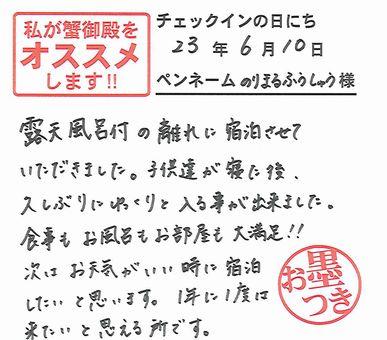 私が蟹御殿を
オススメ
します!!
チェックインの日にち
23年6月10日
ペンネームのりまるふうしゅう様
露天風呂付の離れに宿泊させて
いただきました。子供達が寝た後、
久しぶりにゆっくりと入る事が出来ました。
食事もお風呂もお部屋も大満足!!
次はお天気がいい時に宿泊
したいと思います。1年に1度は
来たいと思える所です。
お墨つき